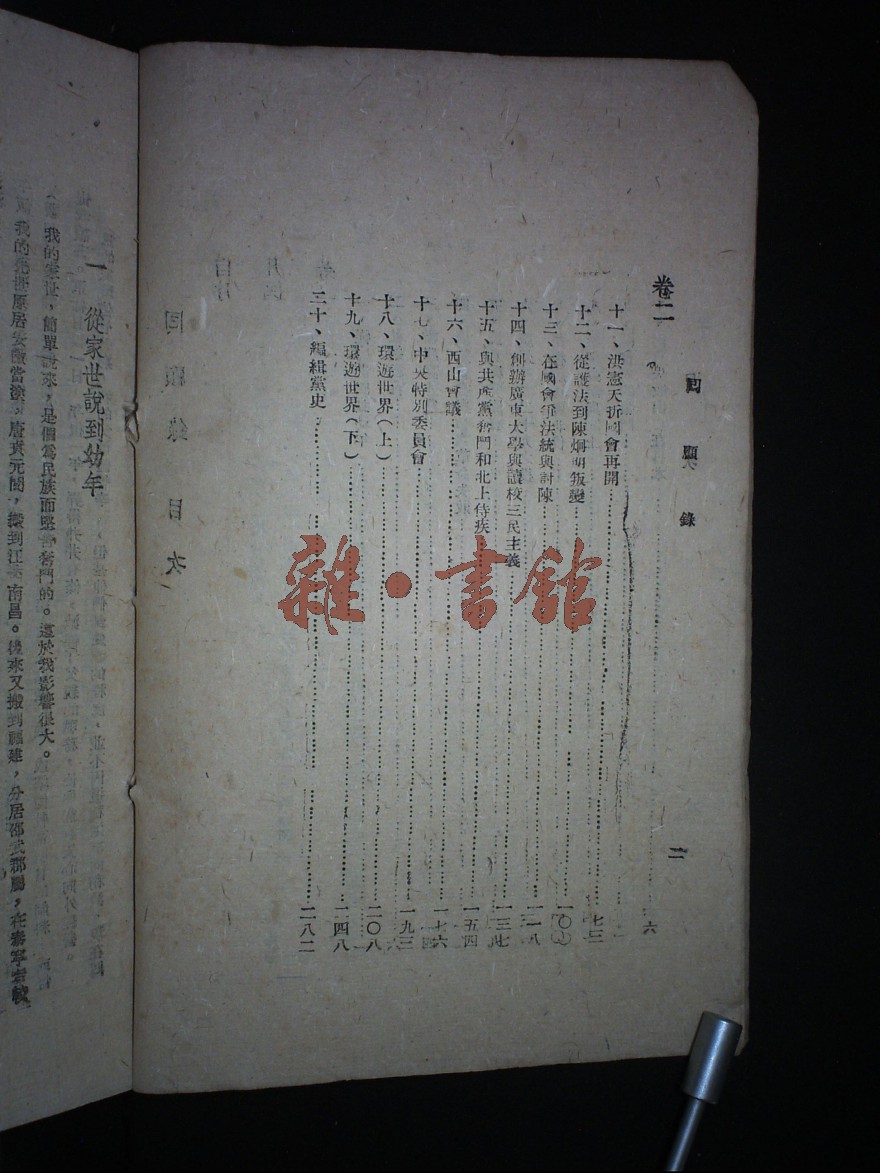 回顧錄
二
卷二
十一、洪憲夭折國會再開
十二、從護法到陳炯明叛變 七三
十三、在國會爭法統與討陳 一〇
十四、創辦廣東大學與讀校三民主義 一一八
十五、與共產黨奮鬥和北上侍疾 一三七
十六、西山會議 一五四
十七、中央特別委員會 一七六
十八、環遊世界(上) 一九三
十九、環遊世界(下) 二〇八
二十、編緝黨史 二四八
二八二
六
雜·書館
回顧錄目次
一 從家世說到幼年
我的家世,簡單說來,是個爲民族而堅苦奮鬥的。這於我影響很大。
我的先世原居安徽當塗。唐貞元間,搬到江西南昌。後來又搬到福建,分居邵武郡屬,在泰寧者較